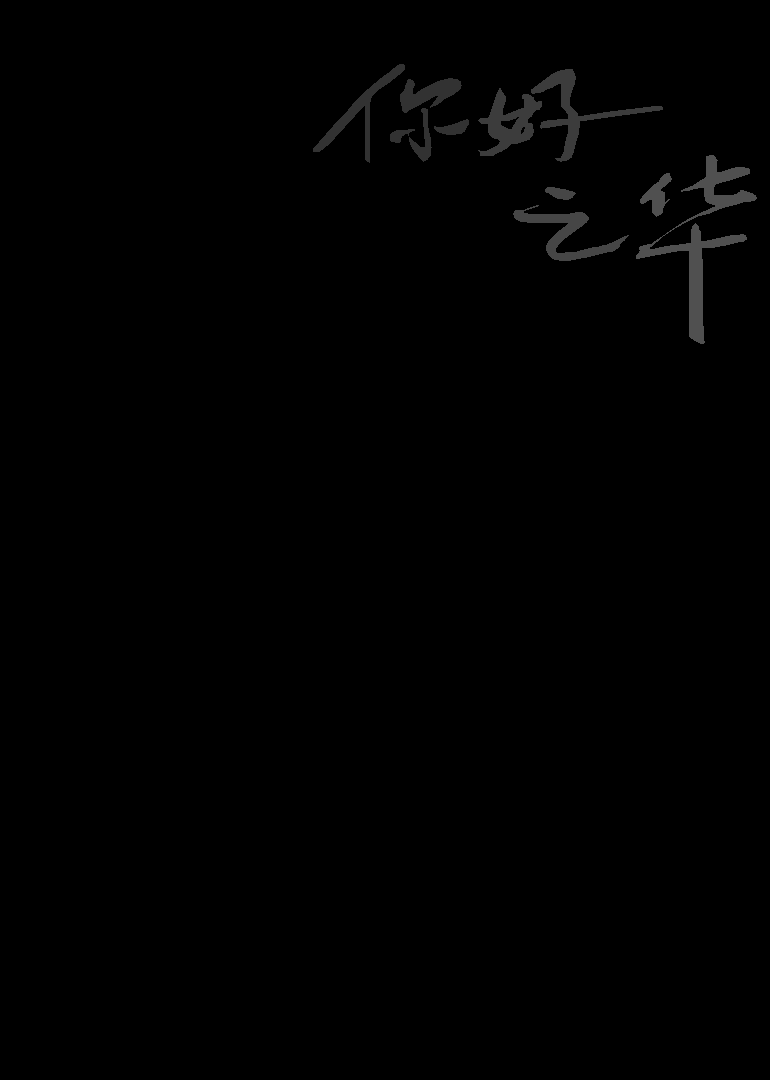 你好
之华